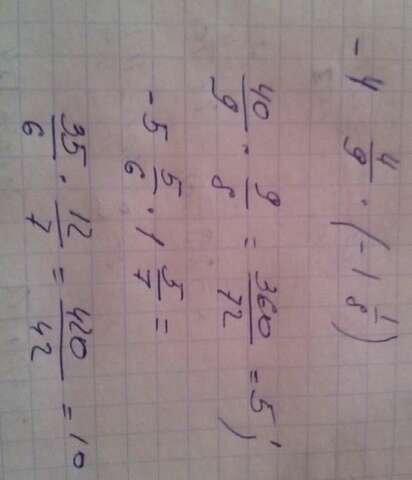 -4 4/9 · (-1 1/8)
40/9 · 9/8 = 360/72 = 5;
-5 5/6 · 1 5/7 =
35/6 · 12/7 = 420/42 = 10